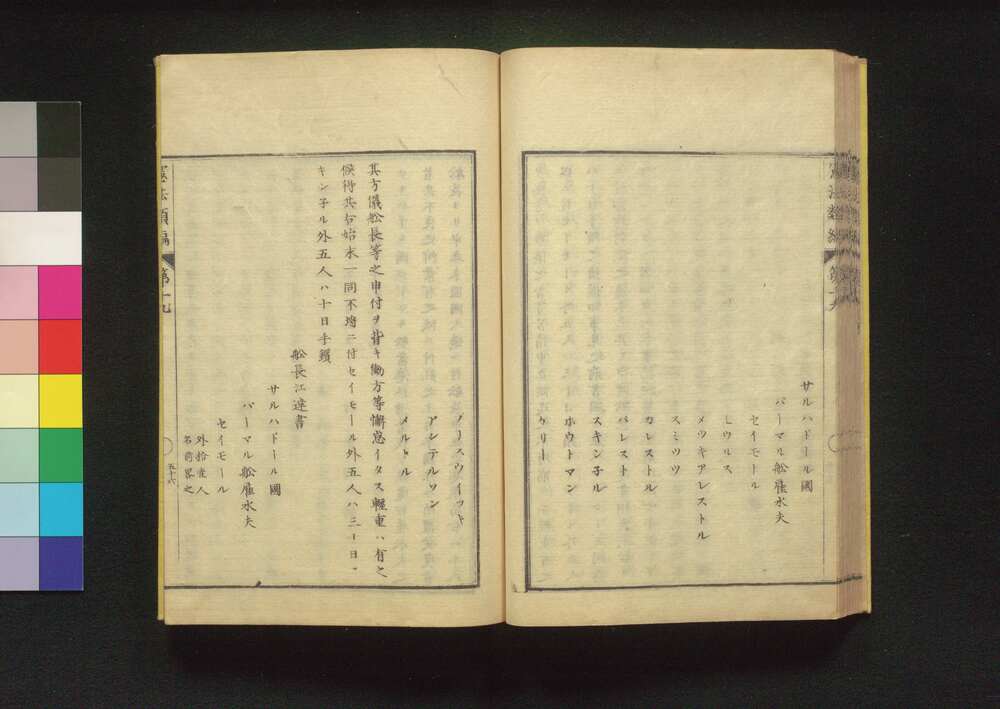 サルハドール國
バーマル舩雇水夫
セイモール
ヒウルス
メツキアレストル
スミツツ
カレストル
バレスト
スキン子ル
ホウトマン
ケリー
ノースウイツキ
アンデルソン
メルトル
其方儀舩長等之申付ヲ背キ働方等懈怠イタス輕重ハ有之
候得共右始末一同不埒ニ付セイモール外五人ハ三十日
キン子ル外五人ハ十日手鎖
舩長江達書
サルハドール國
バーマル舩雇水夫
セイモール
外拾壹人
名前畧之
憲法類編
第十九
五十六